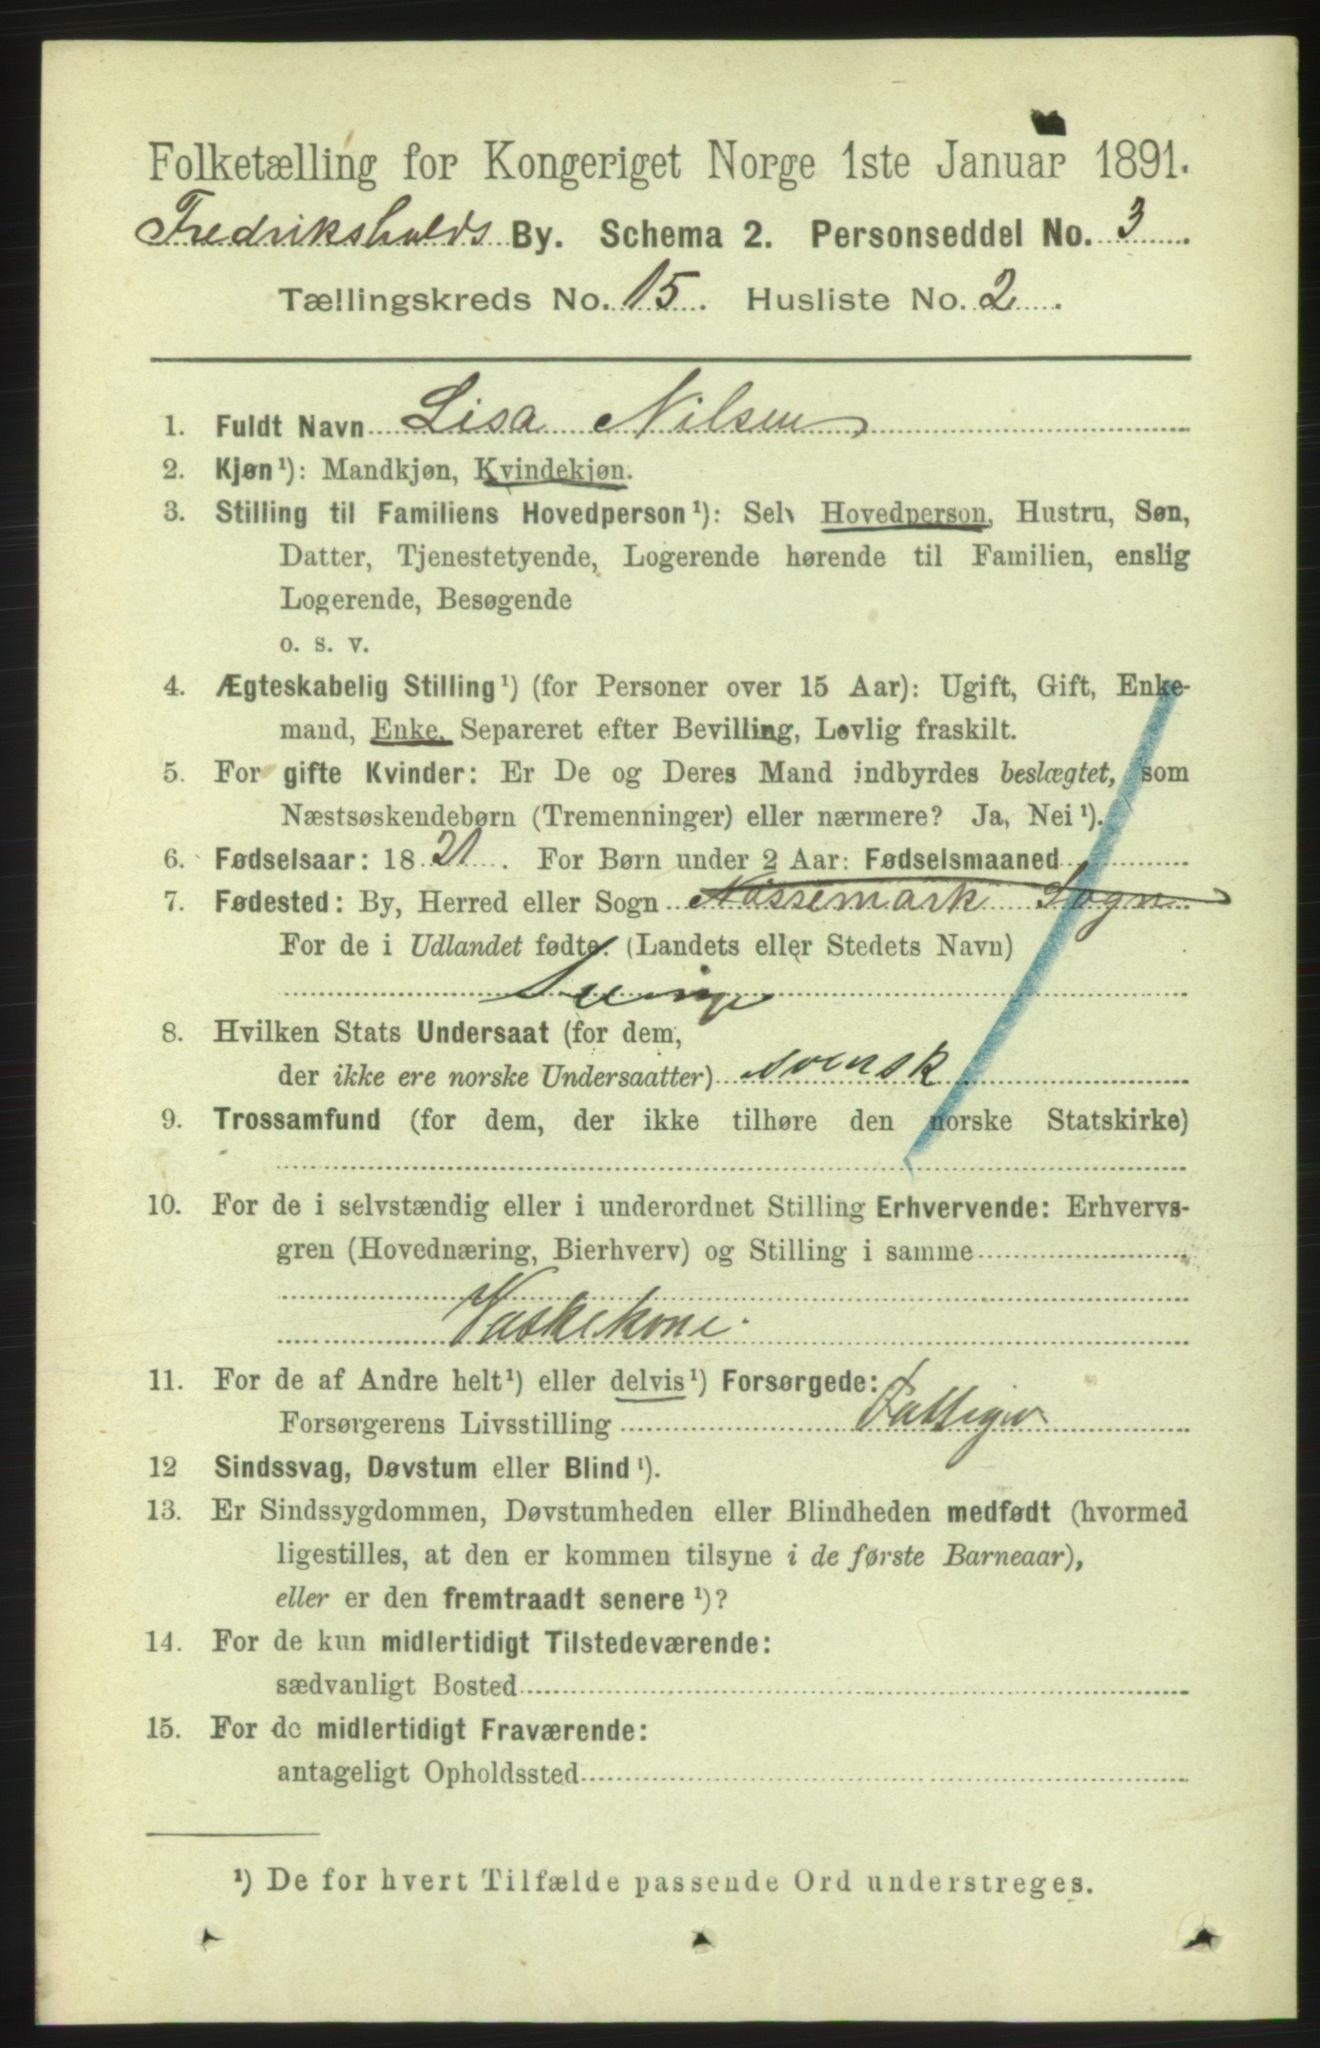 Folketælling for Kongeriget Norge 1ste Januar 1891.
Fredrikshalds By. Schema 2. Personseddel No. 3
Tællingskreds No. 15. Husliste No. 2.
1. Fuldt Navn Lisa Nilsen
2. Kjøn¹): Mandkjøn, Kvindekjøn.
3. Stilling til Familiens Hovedperson¹): Selv Hovedperson, Hustru, Søn,
Datter, Tjenestetyende, Logerende hørende til Familien, enslig
Logerende, Besøgende
o. s. v.
4. Ægteskabelig Stilling¹) (for Personer over 15 Aar): Ugift, Gift, Enke-
mand, Enke, Separeret efter Bevilling, Lovlig fraskilt.
5. For gifte Kvinder: Er De og Deres Mand indbyrdes beslægtet, som
Næstsøskendebørn (Tremenninger) eller nærmere? Ja, Nei¹).
6. Fødselsaar: 1821. For Børn under 2 Aar: Fødselsmaaned
7. Fødested: By, Herred eller Sogn Nössemark Sogn
For de i Udlandet fødte. (Landets eller Stedets Navn)
8. Hvilken Stats Undersaat (for dem,
der ikke ere norske Undersaatter) svensk
9. Trossamfund (for dem, der ikke tilhøre den norske Statskirke)
10. For de i selvstændig eller i underordnet Stilling Erhvervende: Erhvervs-
gren (Hovednæring, Bierhverv) og Stilling i samme
Vaskekone.
11. For de af Andre helt¹) eller delvis¹) Forsørgede:
Forsørgerens Livsstilling
12 Sindssvag, Døvstum eller Blind¹).
13. Er Sindssygdommen, Døvstumheden eller Blindheden medfødt (hvormed
ligestilles, at den er kommen tilsyne i de første Barneaar),
eller er den fremtraadt senere¹)?
14. For de kun midlertidigt Tilstedeværende:
sædvanligt Bosted
15. For de midlertidigt Fraværende:
antageligt Opholdssted
¹) De for hvert Tilfælde passende Ord understreges.